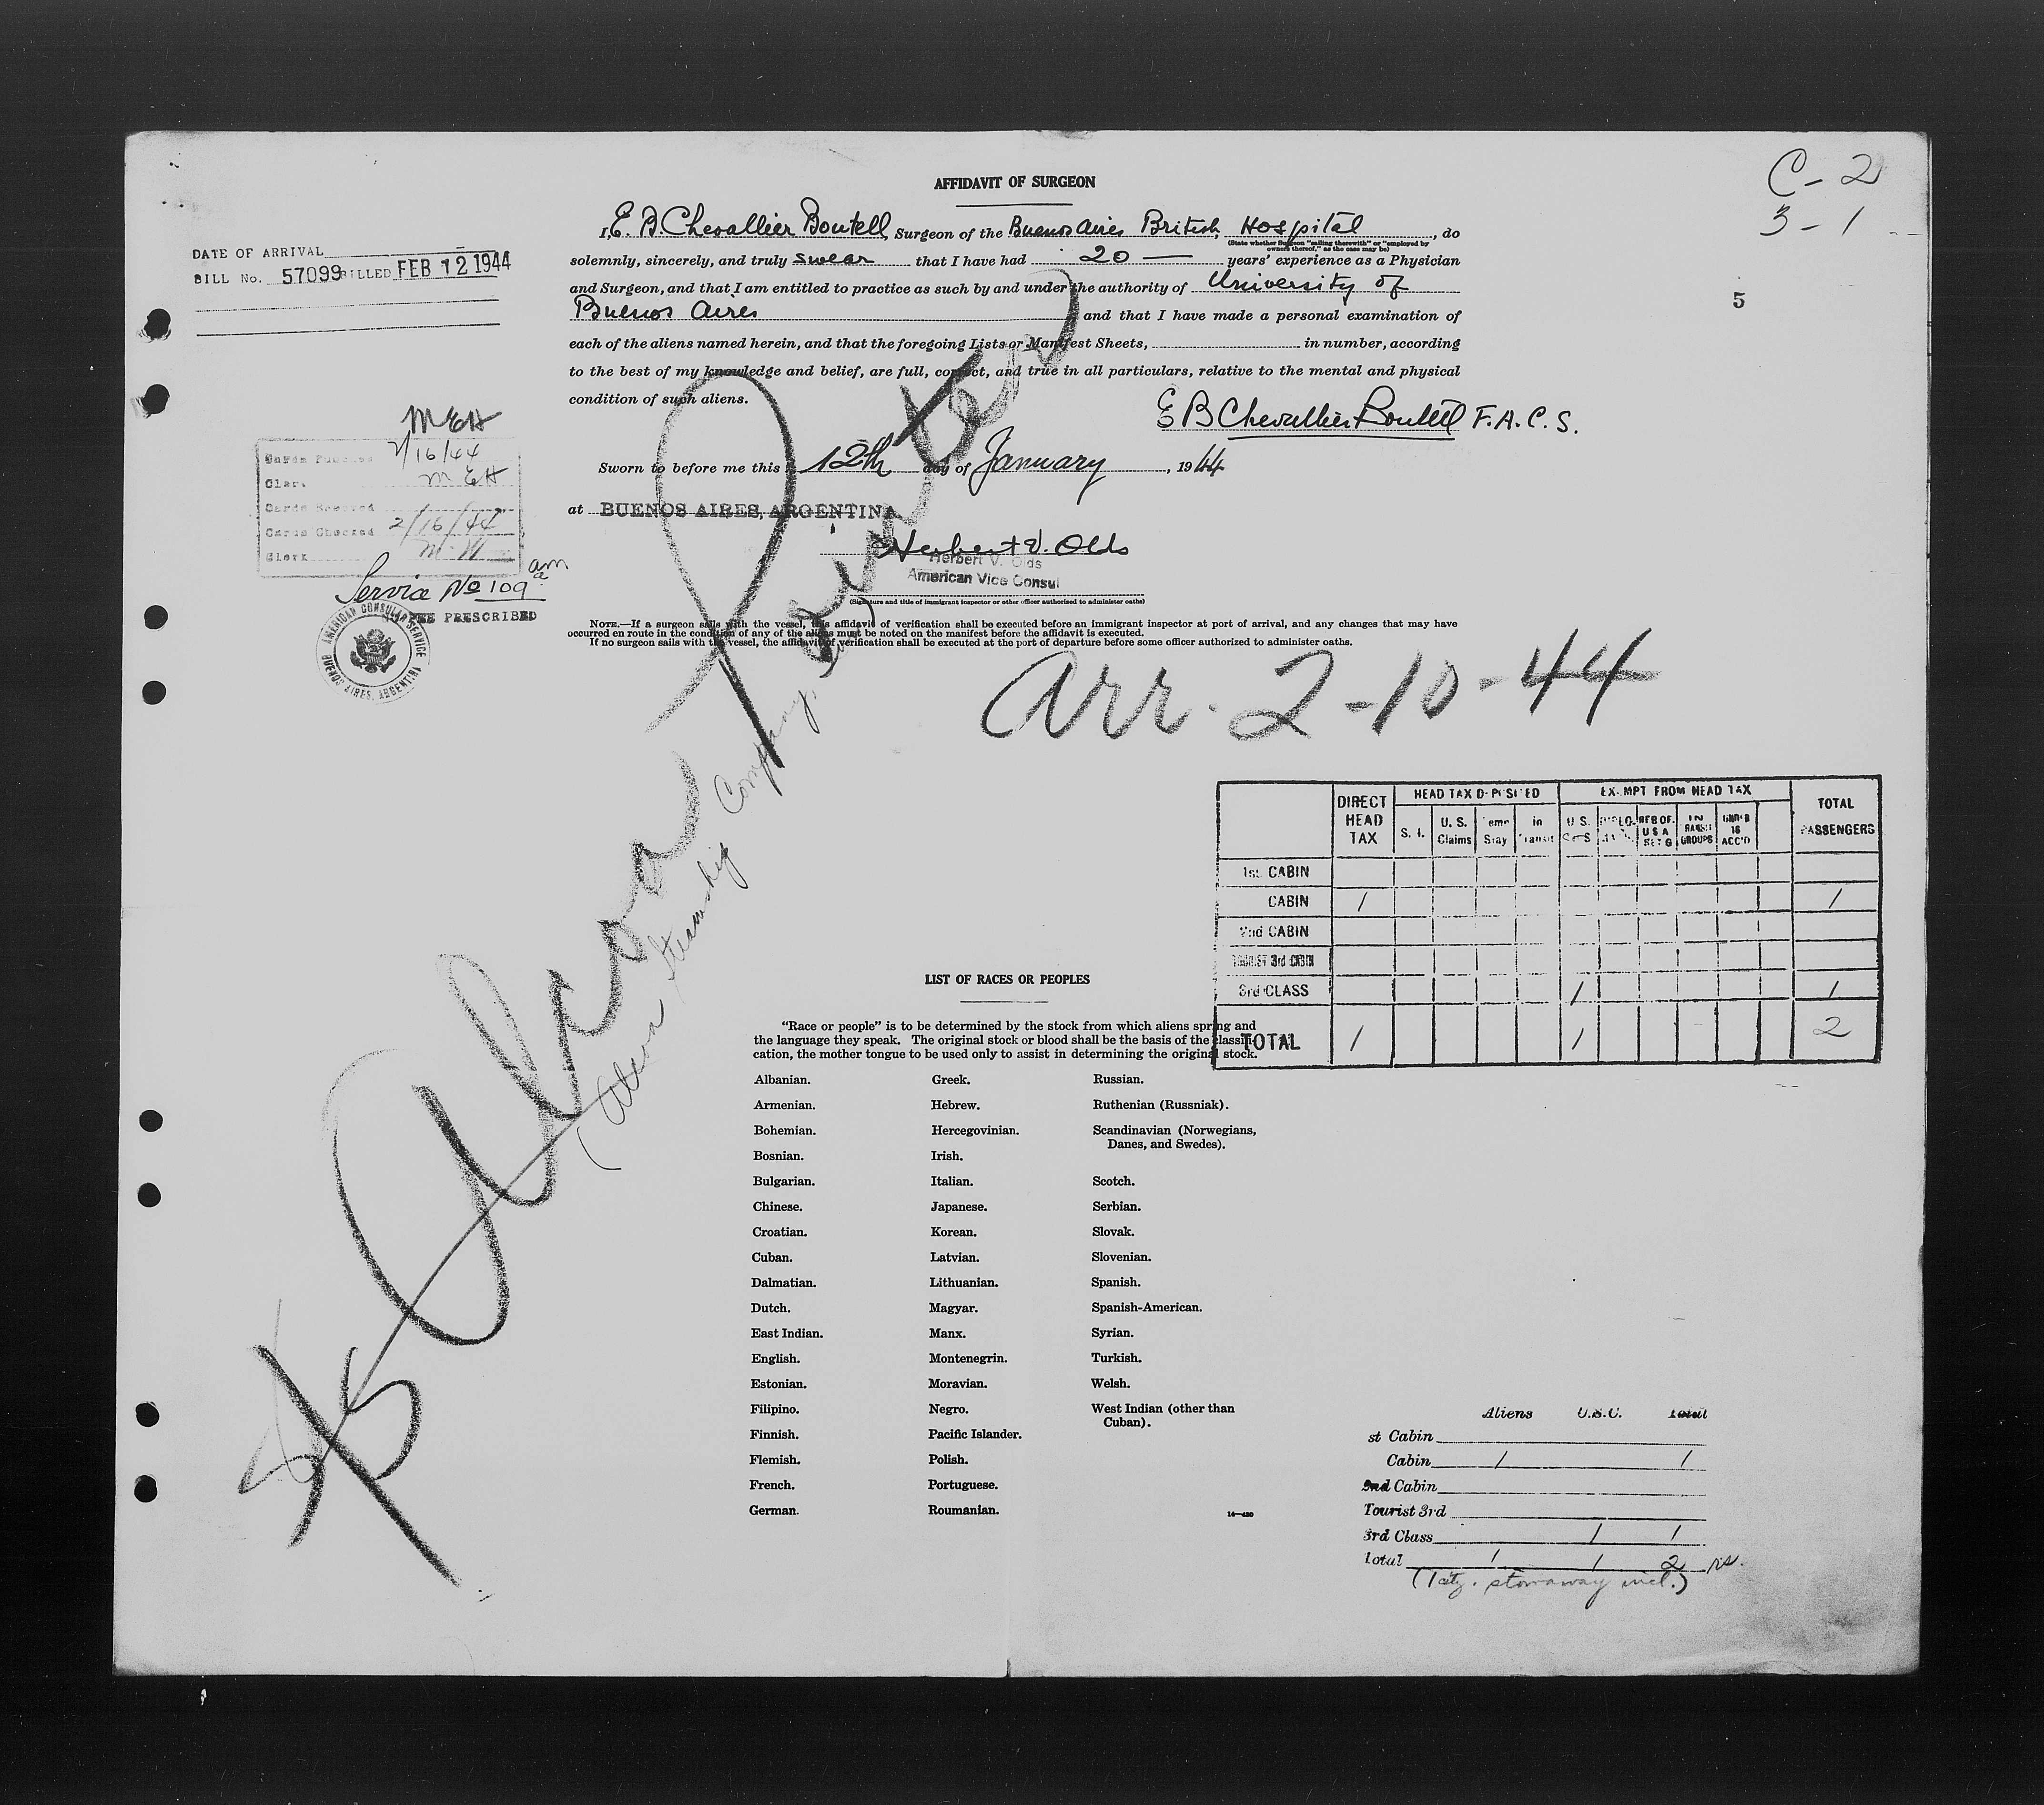 C-2
3-1
5
AFFIDAVIT OF SURGEON
I, E. B. Chevallier Boutell, Surgeon of the Buenos Aires British Hospital, do
(State whether Surgeon "sailing therewith" or "employed by
owners thereof," as the case may be)
solemnly, sincerely, and truly swear that I have had 20 — years' experience as a Physician
and Surgeon, and that I am entitled to practice as such by and under the authority of University of
Buenos Aires and that I have made a personal examination of
each of the aliens named herein, and that the foregoing Lists or Manifest Sheets, in number, according
to the best of my knowledge and belief, are full, correct, and true in all particulars, relative to the mental and physical
condition of such aliens.
E B Chevallier Boutell F.A.C.S.
Sworn to before me this 12th day of January, 1944
at BUENOS AIRES, ARGENTINA
Herbert V. Olds
Herbert V. Olds
American Vice Consul
(Signature and title of immigrant inspector or other officer authorized to administer oaths)
NOTE.—If a surgeon sails with the vessel, this affidavit of verification shall be executed before an immigrant inspector at port of arrival, and any changes that may have
occurred en route in the condition of any of the aliens must be noted on the manifest before the affidavit is executed.
If no surgeon sails with the vessel, the affidavit of verification shall be executed at the port of departure before some officer authorized to administer oaths.
DATE OF ARRIVAL
BILL No. 57099 BILLED FEB 12 1944
MEH
2/16/44
Clerk MEH
Cards Checked 2/16/44
Clerk
Service No 109 a
am
FEE PRESCRIBED
AMERICAN CONSULAR SERVICE
BUENOS AIRES, ARGENTINA
SS Alcoa Pointer
(Alcoa Steamship Company
Arr. 2-10-44
DIRECT HEAD TAX
HEAD TAX DEPOSITED
EXEMPT FROM HEAD TAX
TOTAL PASSENGERS
S. I. U. S. Claims Temp Stay in Transit U. S. IN TRANSIT GROUPS UNDER 16 ACC'D
1st CABIN
CABIN 1 1
2nd CABIN
TOURIST 3rd CABIN
3rd CLASS 1 1
TOTAL 1 1 2
LIST OF RACES OR PEOPLES
"Race or people" is to be determined by the stock from which aliens spring and
the language they speak. The original stock or blood shall be the basis of the classifi-
cation, the mother tongue to be used only to assist in determining the original stock.
Albanian. Greek. Russian.
Armenian. Hebrew. Ruthenian (Russniak).
Bohemian. Hercegovinian. Scandinavian (Norwegians,
Danes, and Swedes).
Bosnian. Irish.
Bulgarian. Italian. Scotch.
Chinese. Japanese. Serbian.
Croatian. Korean. Slovak.
Cuban. Latvian. Slovenian.
Dalmatian. Lithuanian. Spanish.
Dutch. Magyar. Spanish-American.
East Indian. Manx. Syrian.
English. Montenegrin. Turkish.
Estonian. Moravian. Welsh.
Filipino. Negro. West Indian (other than
Cuban).
Finnish. Pacific Islander.
Flemish. Polish.
French. Portuguese.
German. Roumanian.
Aliens U.S.C. Total
st Cabin
Cabin 1 1
2nd Cabin
Tourist 3rd
3rd Class 1 1
Total 1 1 2
(1 citz. stowaway incl.)